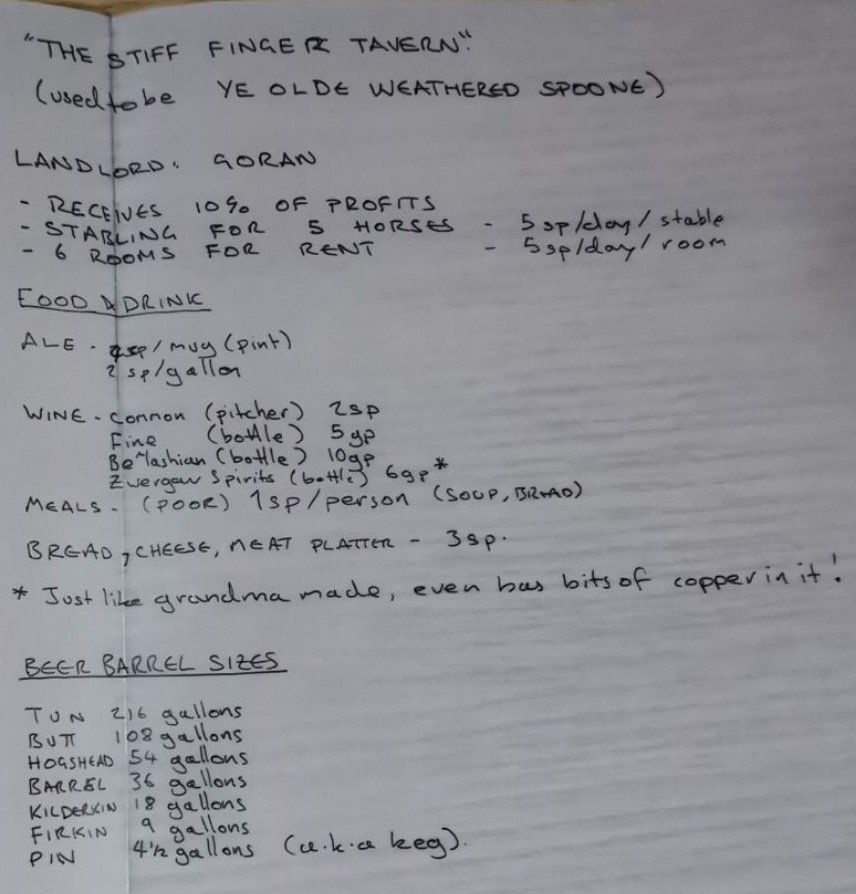 "THE STIFF FINGER TAVERN".
(used to be YE OLDE WEATHERED SPOONE)
LANDLORD: GORAN
- RECEIVES 10% OF PROFITS
- STABLING FOR 5 HORSES - 5sp/day/stable
- 6 ROOMS FOR RENT - 5sp/day/room
FOOD & DRINK
ALE - /mug (pint)
2sp/gallon
WINE - Common (pitcher) 2sp
Fine (bottle) 5gp
(bottle) 10gp
Spirits (bottle) 6gp*
MEALS - (POOR) 1sp/person (SOUP, BREAD)
BREAD, CHEESE, MEAT PLATTER - 3sp.
* Just like grandma made, even has bits of copper in it!
BEER BARREL SIZES
TUN 216 gallons
BUTT 108 gallons
HOGSHEAD 54 gallons
BARREL 36 gallons
KILDERKIN 18 gallons
FIRKIN 9 gallons
PIN 4½ gallons (a.k.a keg).